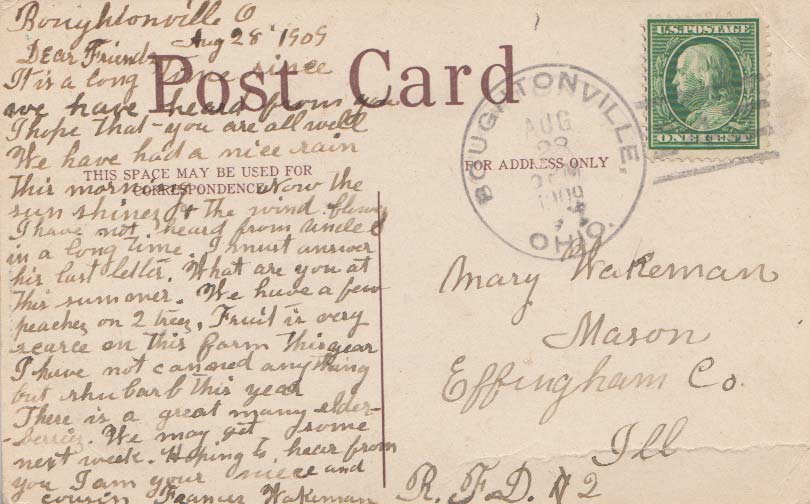 Boughtonville O
Aug 28 1909
Dear Friends
It is a long time since
we have heard from you
I hope that you are all well
We have had a nice rain
this morning. Now the
sun shines & the wind blows
I have not heard from Uncle C
in a long time. I must answer
his last letter. What are you at
this summer. We have a few
peaches on 2 trees. Fruit is very
scarce on this farm this year
I have not canned anything
but rhubarb this year
There is a great many elder-
-berries. We may get some
next week. Hoping to hear from
you I am your niece and
cousin Frances Wakeman
Post Card
THIS SPACE MAY BE USED FOR
CORRESPONDENCE
FOR ADDRESS ONLY
U.S. POSTAGE
ONE CENT
BOUGHTONVILLE,
OHIO.
AUG
28
PM
1909
Mary Wakeman
Mason
Effingham Co.
Ill
R. F. D. # 2